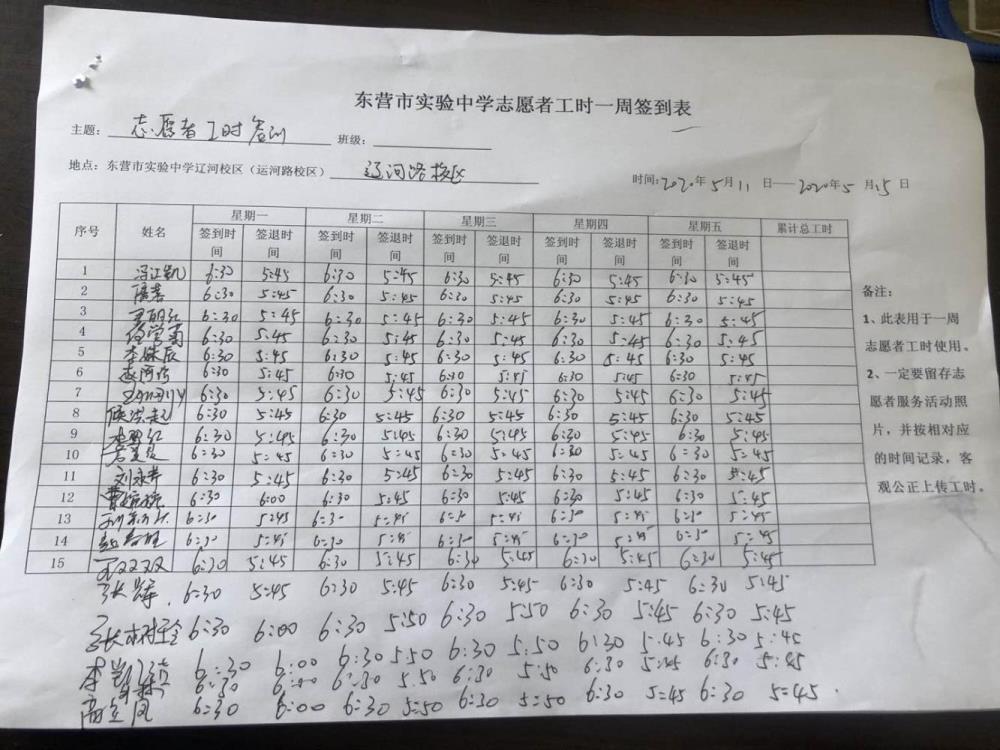 东营市实验中学志愿者工时一周签到表
主题： 志愿者工时签到 班级：
地点：东营市实验中学辽河校区（运河路校区） 辽河路校区 时间：2020年5月11日——2020年5月15日
序号 姓名 星期一 星期二 星期三 星期四 星期五 累计总工时
签到时间 签退时间 签到时间 签退时间 签到时间 签退时间 签到时间 签退时间 签到时间 签退时间
1 6:30 5:45 6:30 5:45 6:30 5:45 6:30 5:45 6:30 5:45
2 6:30 5:45 6:30 5:45 6:30 5:45 6:30 5:45 6:30 5:45
3 6:30 5:45 6:30 5:45 6:30 5:45 6:30 5:45 6:30 5:45
4 6:30 5:45 6:30 5:45 6:30 5:45 6:30 5:45 6:30 5:45
5 6:30 5:45 6:30 5:45 6:30 5:45 6:30 5:45 6:30 5:45
6 6:30 5:45 6:30 5:45 6:30 5:45 6:30 5:45 6:30 5:45
7 6:30 5:45 6:30 5:45 6:30 5:45 6:30 5:45 6:30 5:45
8 6:30 5:45 6:30 5:45 6:30 5:45 6:30 5:45 6:30 5:45
9 6:30 5:45 6:30 5:45 6:30 5:45 6:30 5:45 6:30 5:45
10 6:30 5:45 6:30 5:45 6:30 5:45 6:30 5:45 6:30 5:45
11 刘永芳 6:30 5:45 6:30 5:45 6:30 5:45 6:30 5:45 6:30 5:45
12 6:30 6:00 6:30 5:45 6:30 5:45 6:30 5:45 6:30 5:45
13 6:30 5:45 6:30 5:45 6:30 5:45 6:30 5:45 6:30 5:45
14 6:30 5:45 6:30 5:45 6:30 5:45 6:30 5:45 6:30 5:45
15 双双 6:30 5:45 6:30 5:45 6:30 5:45 6:30 5:45 6:30 5:45
张辉 6:30 5:45 6:30 5:45 6:30 5:45 6:30 5:45 6:30 5:45
张树全 6:30 6:00 6:30 5:50 6:30 5:50 6:30 5:45 6:30 5:45
李 6:30 6:00 6:30 5:50 6:30 5:50 6:30 5:45 6:30 5:45
6:30 6:00 6:30 5:50 6:30 5:50 6:30 5:45 6:30 5:45
高宝凤 6:30 6:00 6:30 5:50 6:30 5:50 6:30 5:45 6:30 5:45
备注：
1、此表用于一周
志愿者工时使用。
2、一定要留存志
愿者服务活动照
片，并按相对应
的时间记录，客
观公正上传工时。